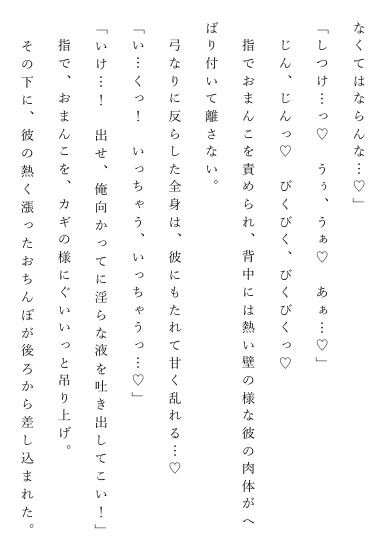 なくてはならんな…♡」
「しつけ…っ♡　うぅ、うぁ♡　あぁ…♡」
じん、じんっ♡　びくびく、びくびくっ♡
指でおまんこを責められ、背中には熱い壁の様な彼の肉体がへ
ばり付いて離さない。
弓なりに反らした全身は、彼にもたれて甘く乱れる…♡
「い…くっ！　いっちゃう、いっちゃうっ…♡」
「いけ…！　出せ、俺向かってに淫らな液を吐き出してこい！」
指で、おまんこを、カギの様にぐいいっと吊り上げ。
その下に、彼の熱く漲ったおちんぽが後ろから差し込まれた。